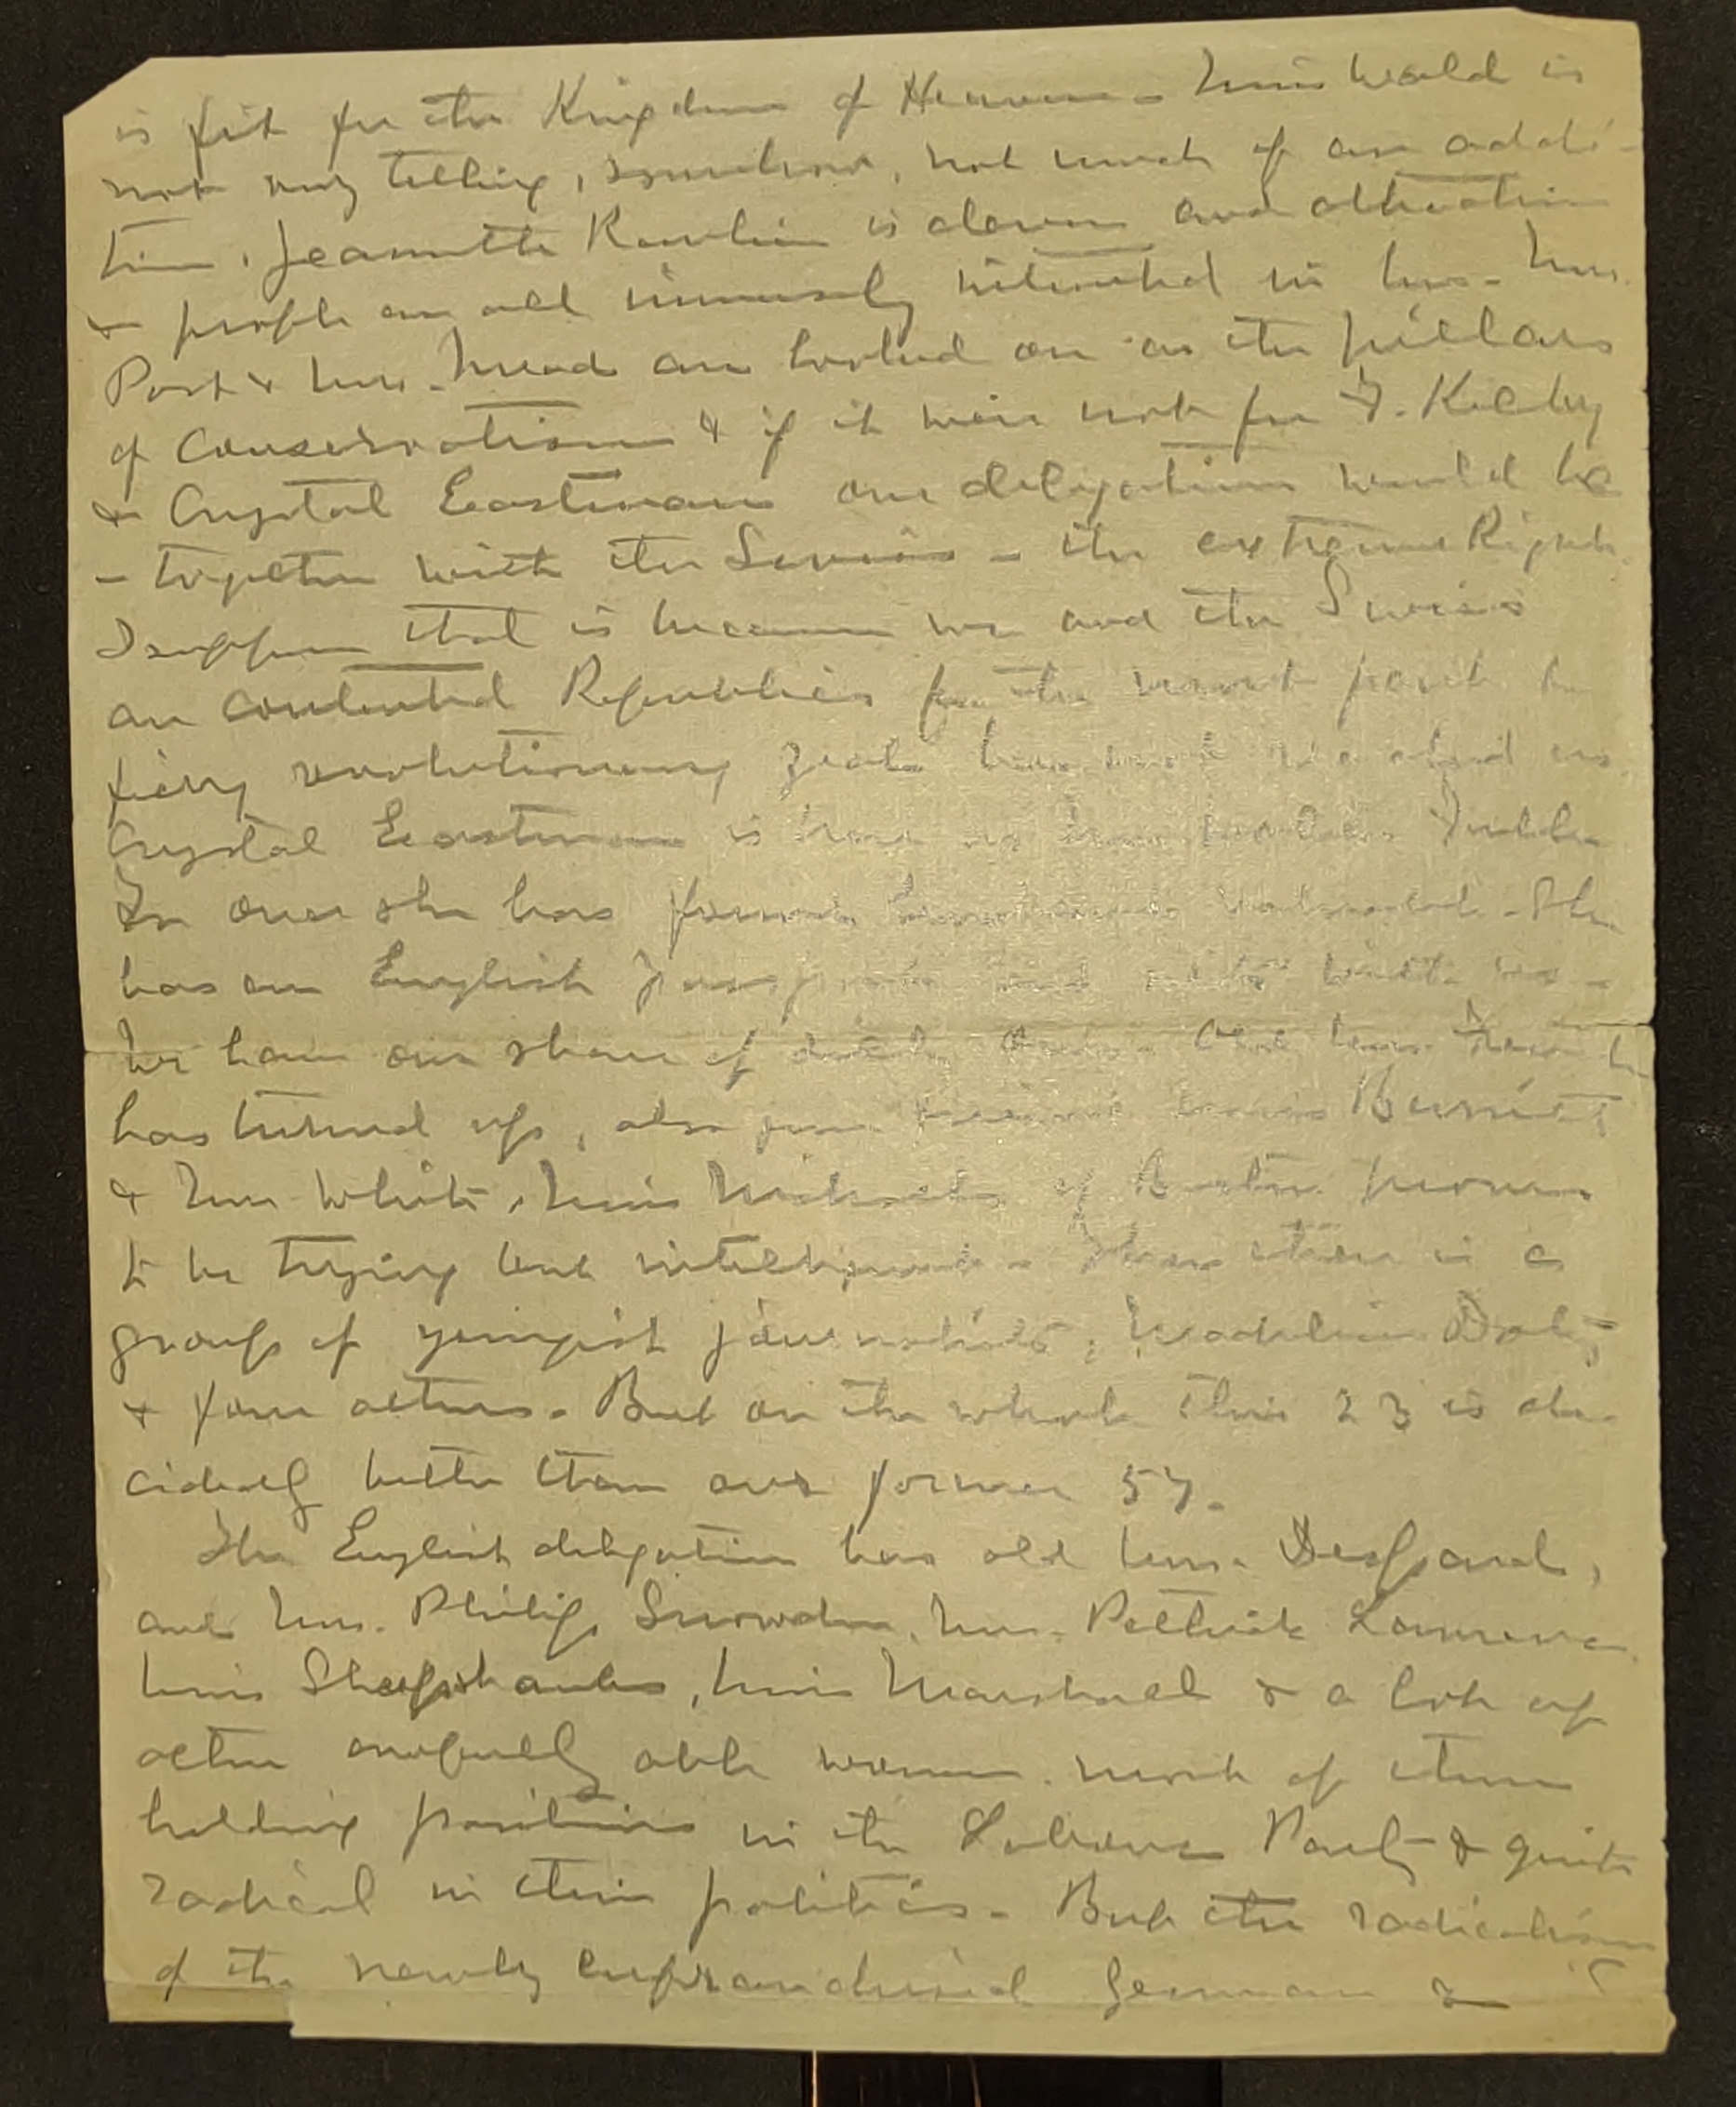 is fit for the Kingdom of Heaven - Miss Wald is
not very telling, somehow, not much of an addi-
tion. Jeannette Rankin is clever and attractive
& people are all immensely interested in her. Mrs.
Post & Mrs. Mead are looked on as the pillars
of Conservatism & if it were not for F. Kelley
& Crystal Eastman our delegation would be
- together with the Swiss - the extreme Right.
I suppose that is because we and the Swiss
are contented Republics for the most part &
fiery revolutionary zeal has not reached us.
Crystal Eastman is here as
In once she has found
has an English passport and with us -
We have our share of Old Mrs.
has turned up, also
& Mrs. White. Miss of Boston proves
to be trying but intelligent. Then there is a
group of youngish journalists, Madeline Doty
& four others. But on the whole this 23 is de-
cidedly better than our former 57.
The English delegation has old Mrs. Despard,
and Mrs. Philip Snowden, Mrs. Pethick Lawrence
Miss Sheepshanks, Miss Marshall & a lot of
other awfully able women, most of them
holding positions in the Labour Party & quite
radical in their politics. But the radicalism
of the newly enfranchised German &